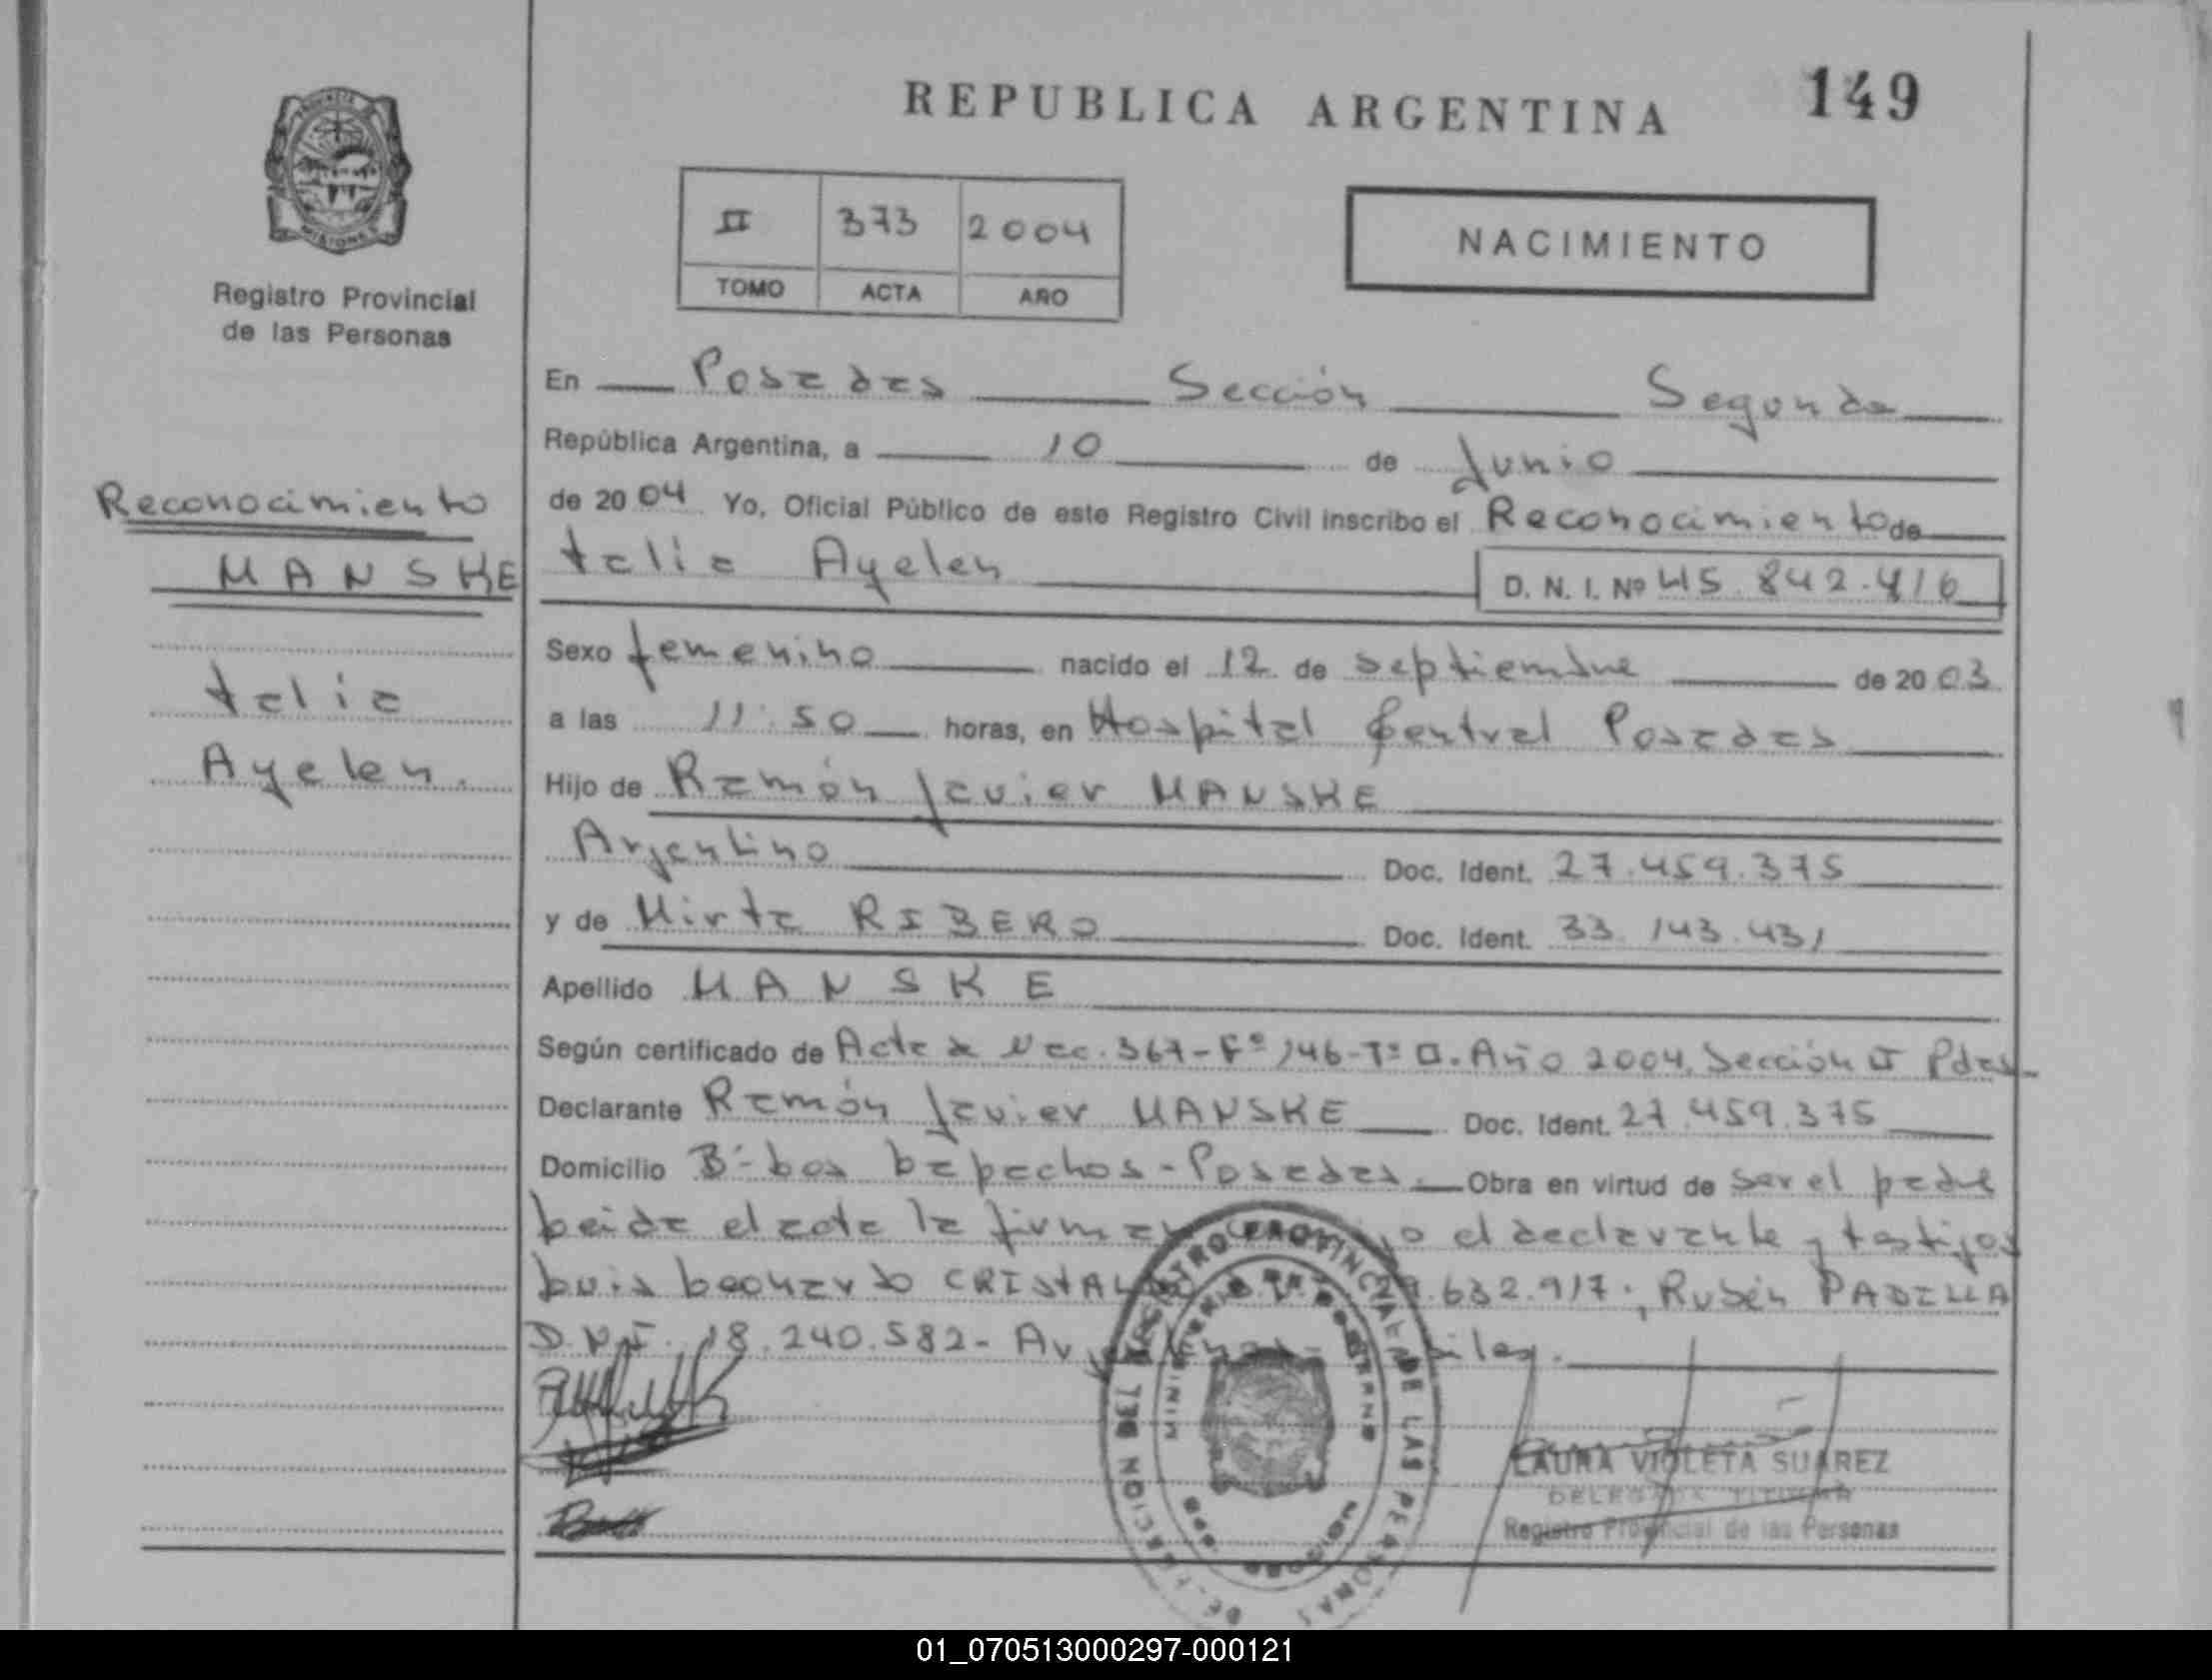 REPUBLICA ARGENTINA 149
PROVINCIA
MISIONES
Registro Provincial
de las Personas
II 373 2004
TOMO ACTA AÑO
NACIMIENTO
En Posadas Sección Segunda
República Argentina, a 10 de Junio
de 2004 Yo, Oficial Público de este Registro Civil inscribo el Reconocimiento de
talia Ayelen D. N. I. Nº 45.842.416
Reconocimiento
MANSKE
talia
Ayelen.
Sexo femenino nacido el 12 de septiembre de 2003
a las 11:50 horas, en Hospital Central Posadas
Hijo de Ramón Javier MANSKE
Argentino Doc. Ident. 27.459.375
y de Mirta RIBERO Doc. Ident. 33.143.431
Apellido MANSKE
Según certificado de Acta Nac. 367-Fº 146-Tº II. Año 2004, Sección II Pdas-
Declarante Ramón Javier MANSKE Doc. Ident. 27.459.375
Domicilio Bº Los Lapachos - Posadas. Obra en virtud de ser el padre
Leida el acta la firman el declarante y testigos
Luis Leonardo .632.917; Rubén PADILLA
D.N.I. 18.240.582- Av.
DIRECCION DEL REGISTRO PROVINCIAL DE LAS PERSONAS
MINISTERIO DE GOBIERNO
LAURA VIOLETA SUAREZ
DELEGADA TITULAR
Registro Provincial de las Personas
01_070513000297-000121